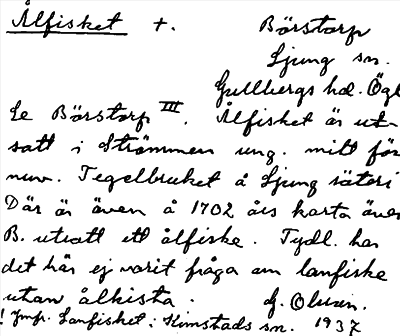 Ålfisket +. Börstorp
Ljung sn.
Gullbergs hd. Ögl
Se Börstorp III. Ålfisket är ut-
satt i Strömmen ung. mitt för
nuv. Tegelbruket å Ljung säteri
Där är även å 1702 års karta även
B. utsatt ett ålfiske. Tydl. har
det här ej varit fråga om lanfiske
utan ålkista. G. Olsén.
! Jmf. Lanfisket i Kimstads sn. 1937